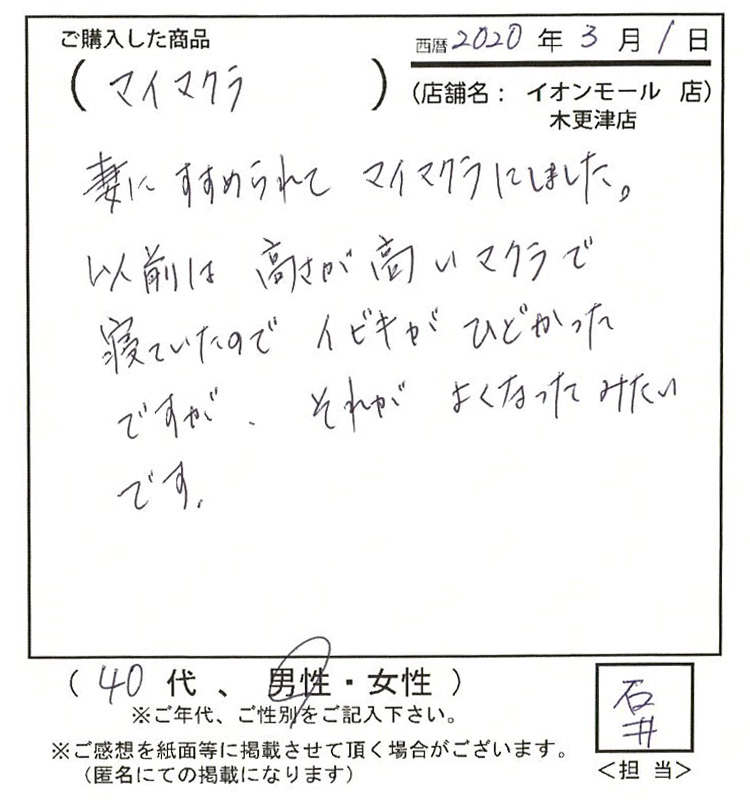 ご購入した商品
西暦 2020 年 3 月 1 日
( マイマクラ )
(店舗名： イオンモール 店)
木更津店
妻に すすめられて マイマクラにしました。
以前は 高さが高いマクラで
寝ていたので イビキが ひどかった
ですが、それが よくなったみたい
です。
( 40 代 、 男性・女性 )
※ご年代、ご性別をご記入下さい。
※ご感想を紙面等に掲載させて頂く場合がございます。
(匿名にての掲載になります)
石井
＜担 当＞